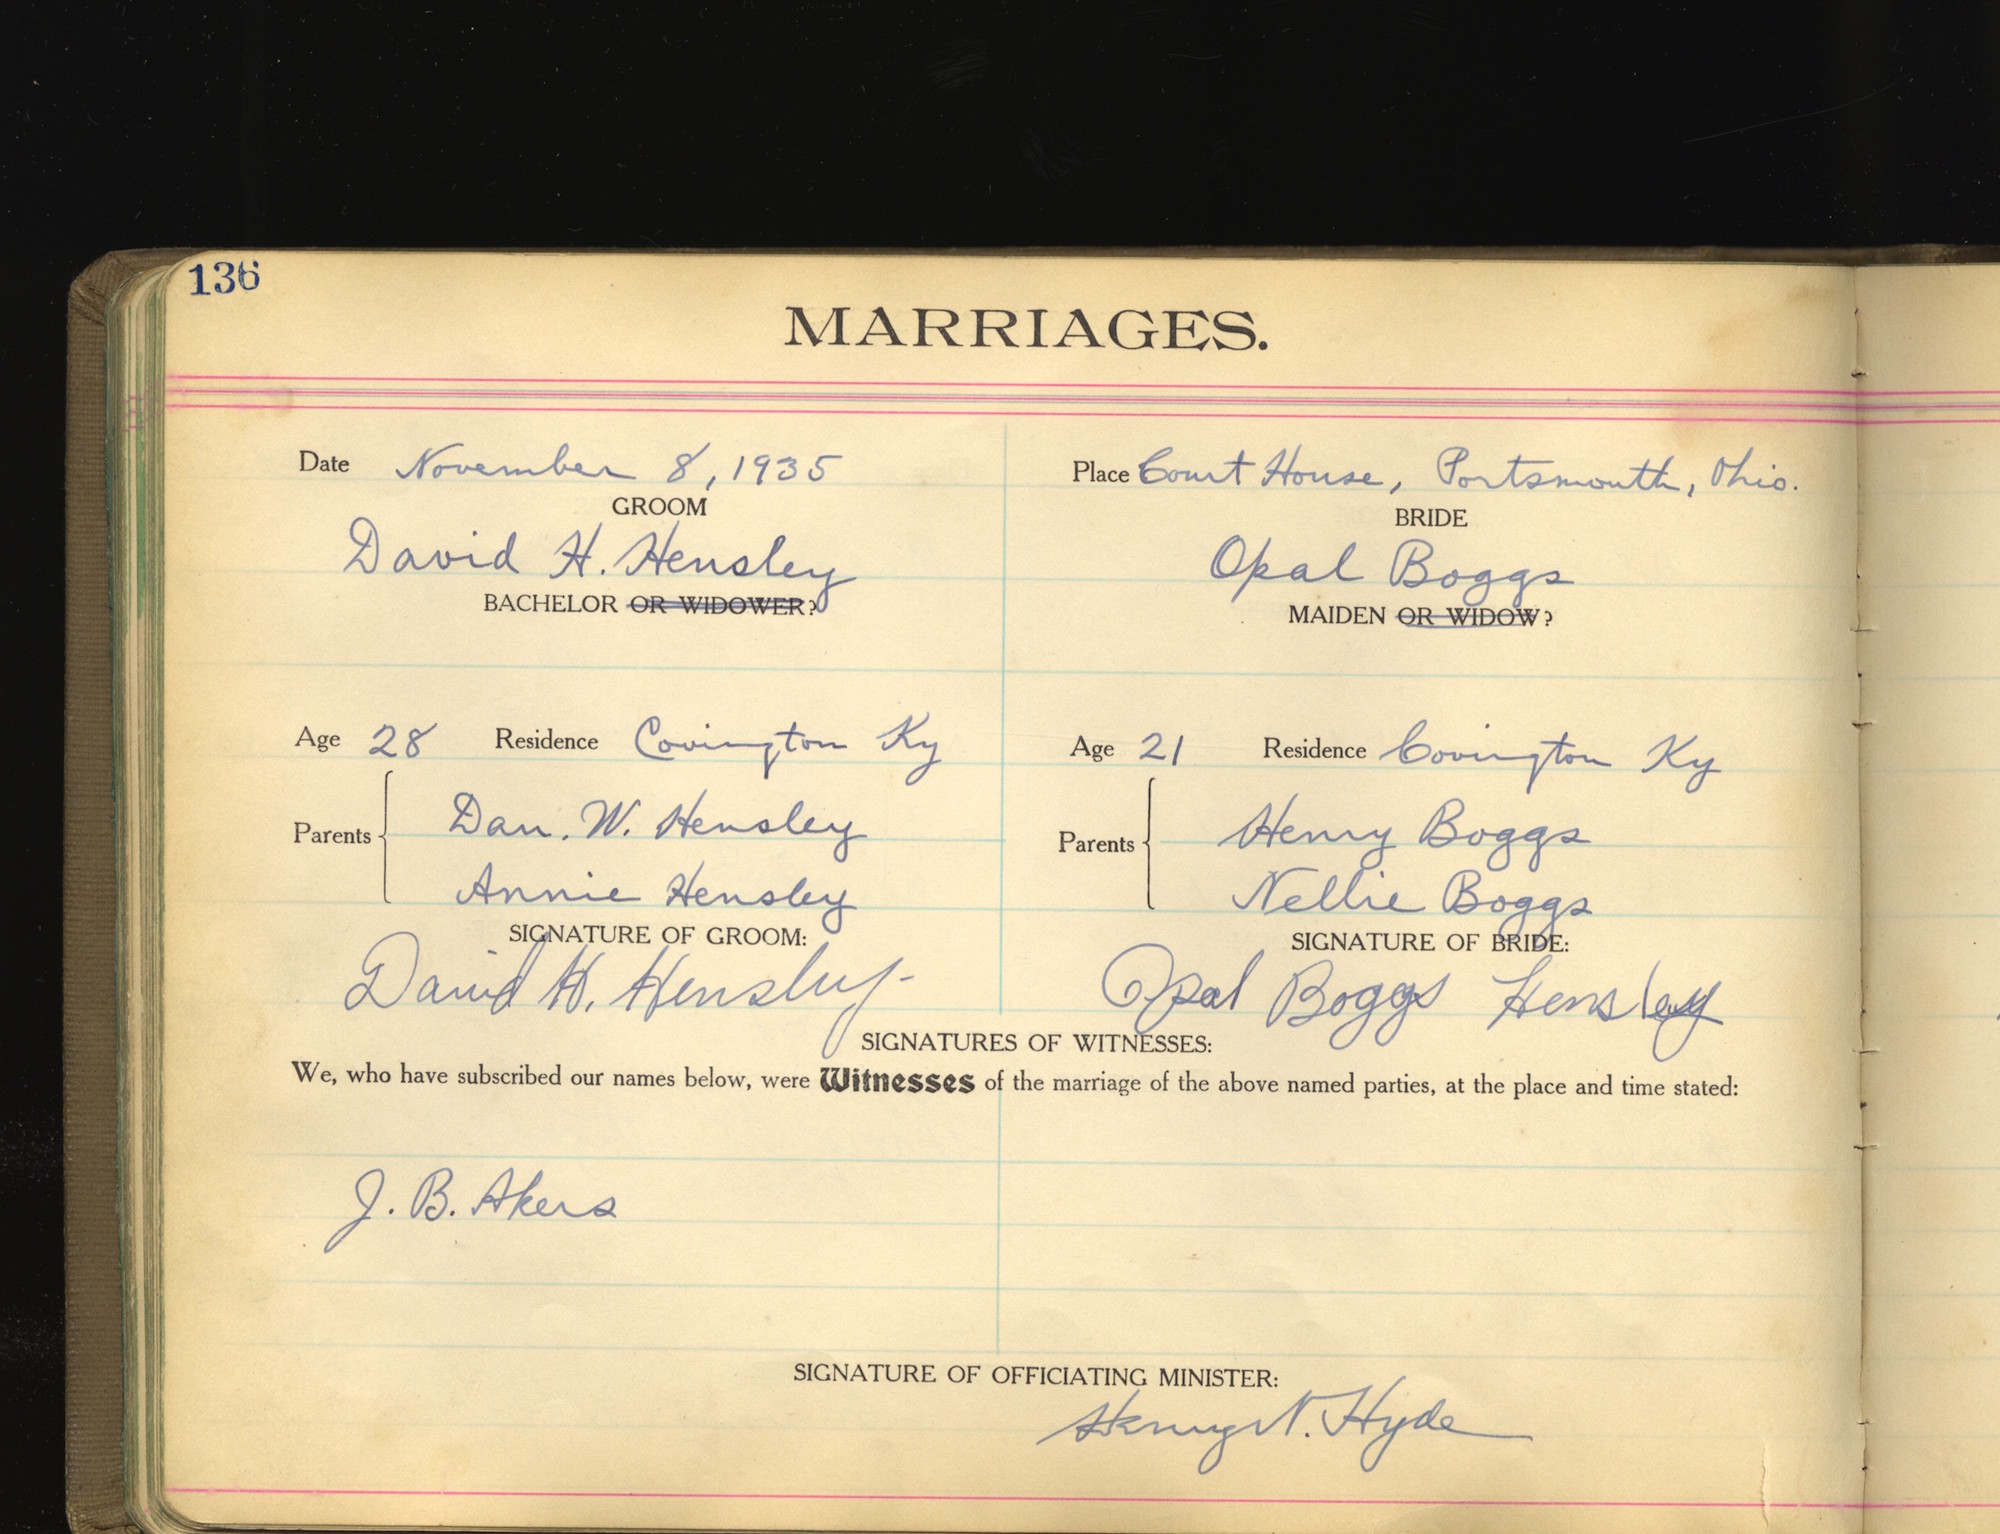 136
MARRIAGES.
Date November 8, 1935 Place Court House, Portsmouth, Ohio.
GROOM BRIDE
David H. Hensley Opal Boggs
BACHELOR OR WIDOWER? MAIDEN OR WIDOW?
Age 28 Residence Covington Ky Age 21 Residence Covington Ky
Parents Dan. W. Hensley Parents Henry Boggs
Annie Hensley Nellie Boggs
SIGNATURE OF GROOM: SIGNATURE OF BRIDE:
David H. Hensley Opal Boggs Hensley
SIGNATURES OF WITNESSES:
We, who have subscribed our names below, were Witnesses of the marriage of the above named parties, at the place and time stated:
J. B. Akers
SIGNATURE OF OFFICIATING MINISTER:
Henry N. Hyde